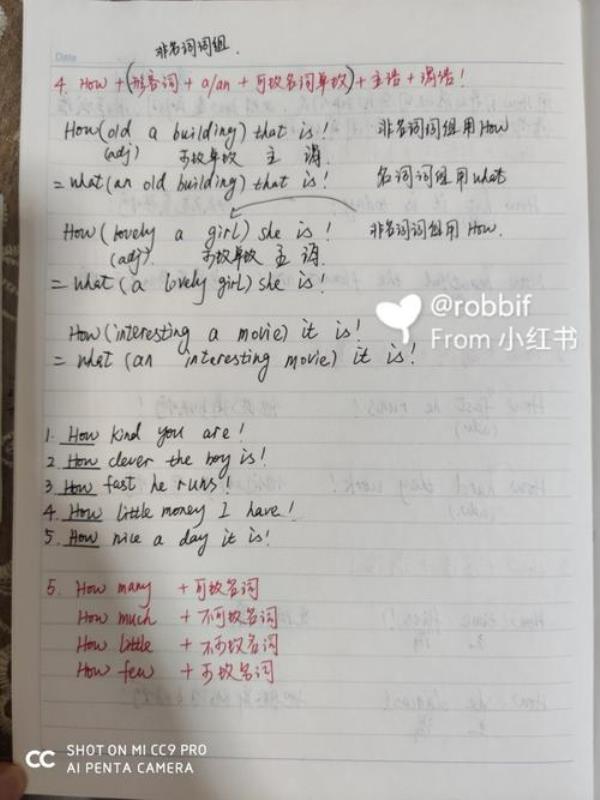 Date
非名词词组.
4. How + (形容词 + a/an + 可数名词单数) + 主语 + 谓语!
How (old a building) that is! 非名词词组用How
(adj) 可数单数 主 谓.
= what (an old building) that is! 名词词组用what
How (lovely a girl) she is! 非名词词组用How.
(adj) 可数单数 主 谓.
= what (a lovely girl) she is!
How (interesting a movie) it is!
= what (an interesting movie) it is!
@robbif
From 小红书
1. How kind you are!
2. How clever the boy is!
3 How fast he runs!
4. How little money I have!
5. How nice a day it is!
5. How many + 可数名词
How much + 不可数名词
How little + 不可数名词
How few + 可数名词
CC SHOT ON MI CC9 PRO
AI PENTA CAMERA